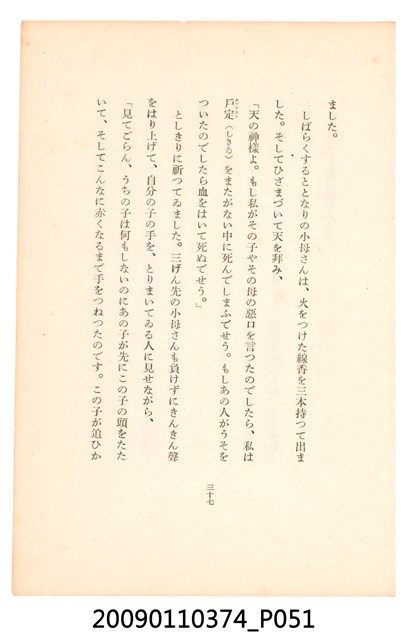 ました。
しばらくするととなりの小母さんは、火をつけた線香を三本持つて出ま
した。そしてひざまづいて天を拜み、
「天の神樣よ。もし私がその子やその母の惡口を言つたのでしたら、私は
戸定（しきゐ）をまたがない中に死んでしまふでせう。もしあの人がうそを
ついたのでしたら血をはいて死ぬでせう。」
としきりに祈つてゐました。三げん先の小母さんも負けずにきんきん聲
をはり上げて、自分の子の手を、とりまいてゐる人に見せながら、
「見てごらん、うちの子は何もしないのにあの子が先にこの子の頭をたた
いて、そしてこんなに赤くなるまで手をつねつたのです。この子が追ひか
三十七
20090110374_P051